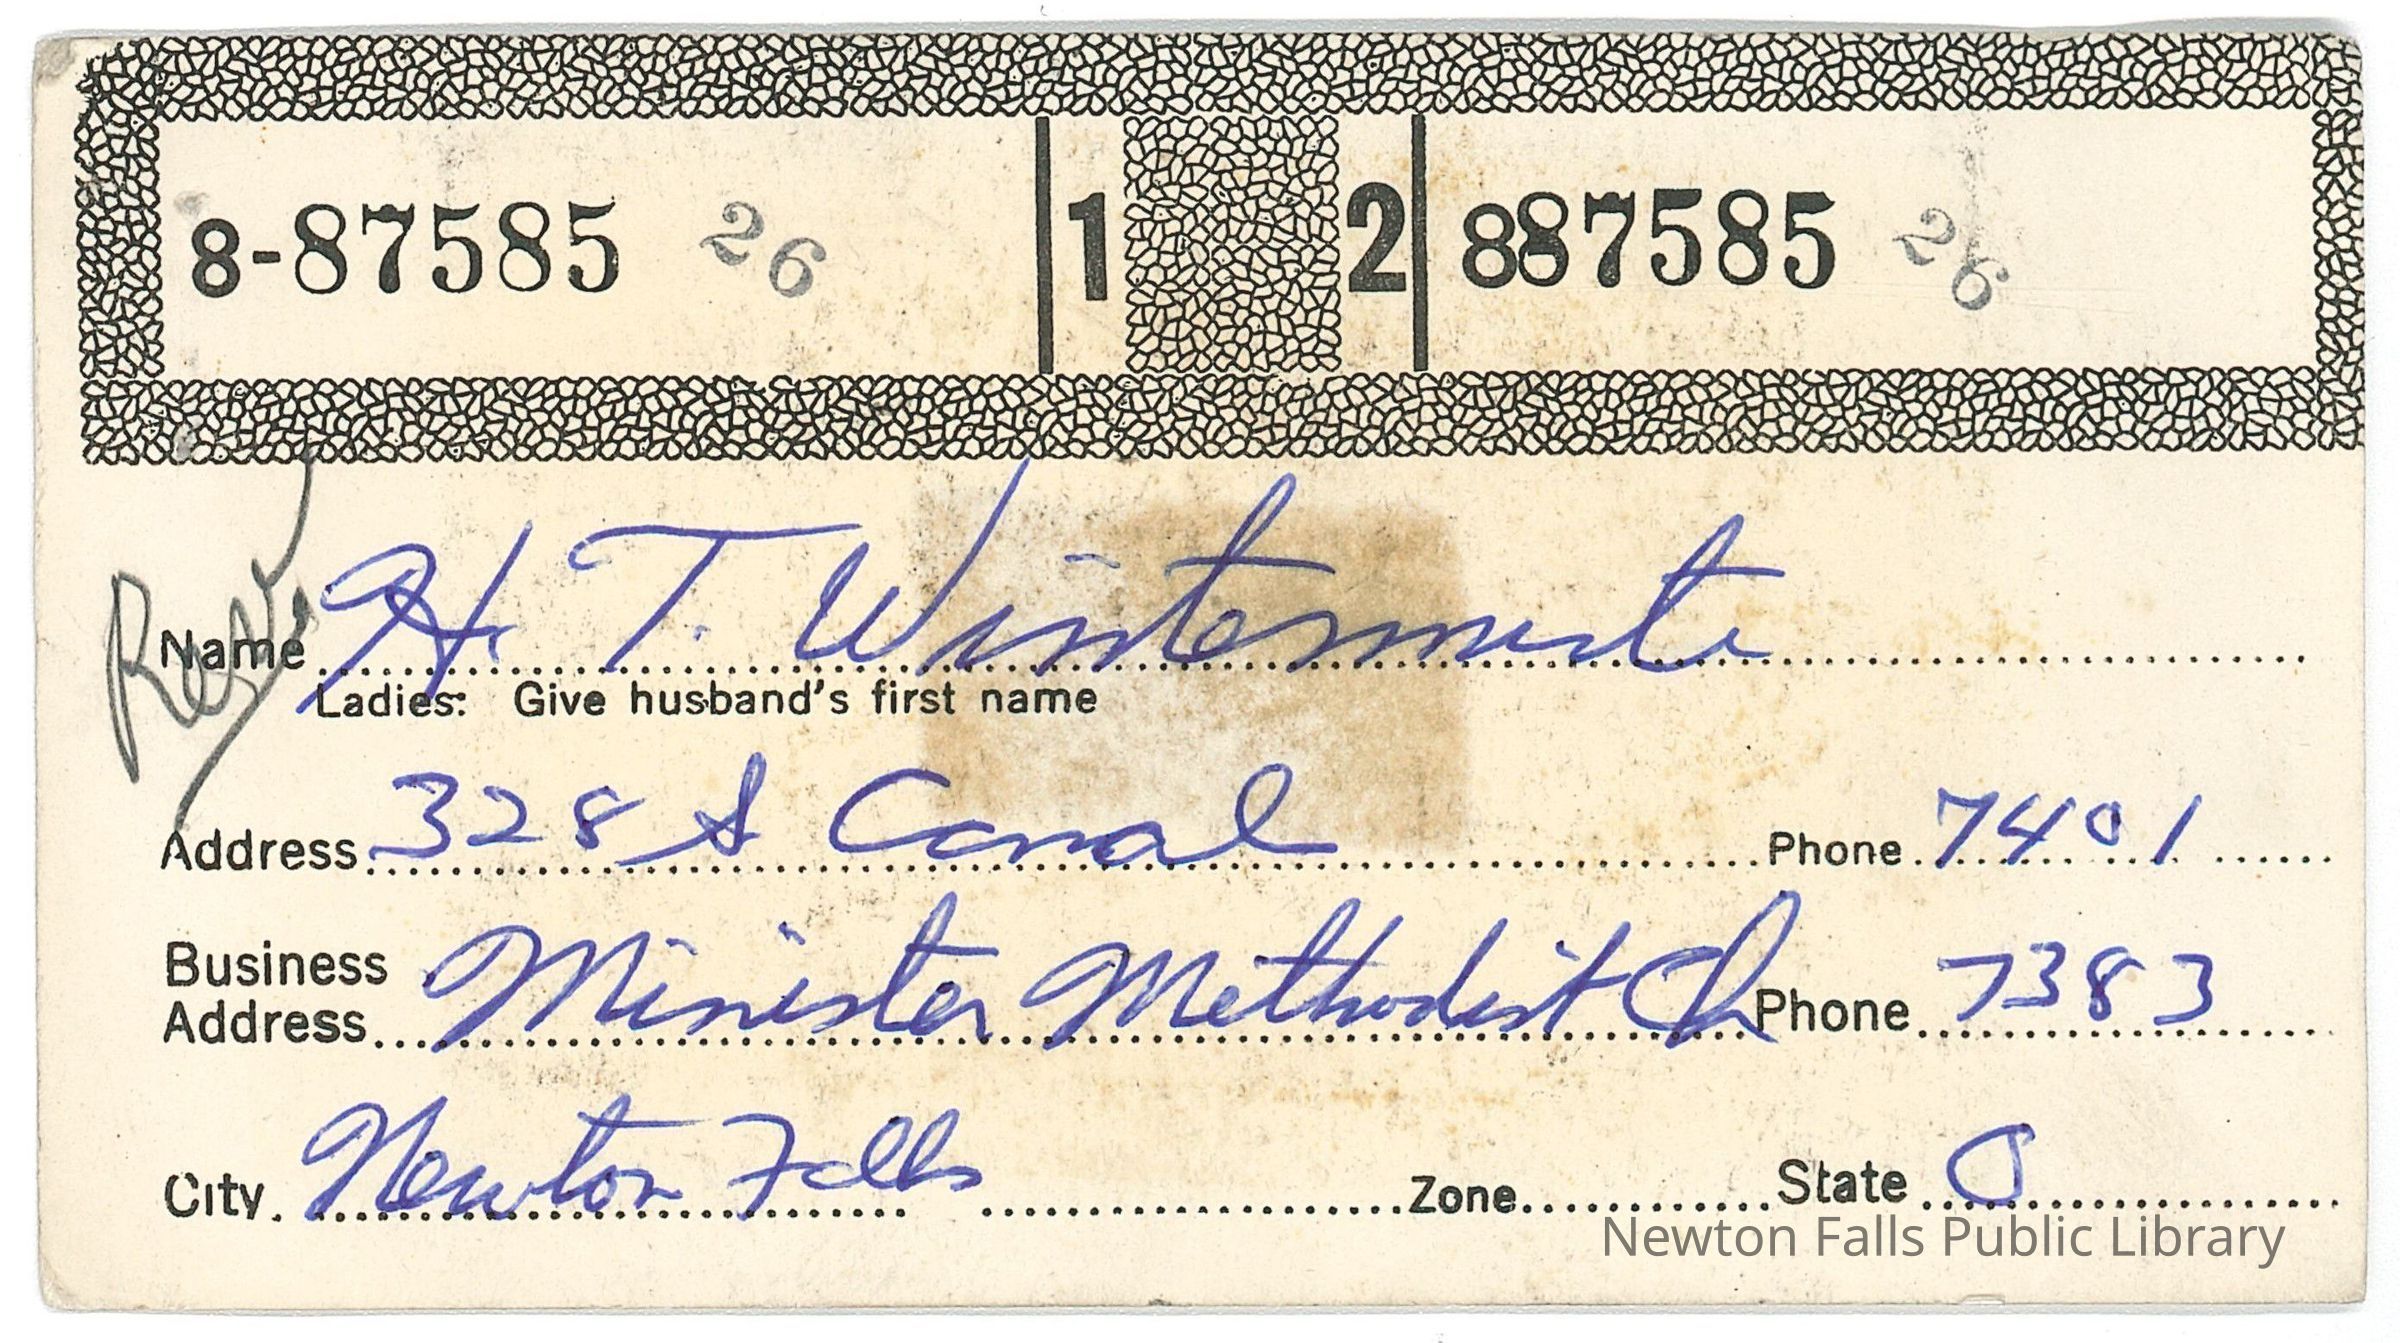 8-87585 26 1 2 887585 26
Rev. Name H. T. Wintermute
Ladies: Give husband's first name
Address 328 S Canal Phone 7401
Business
Address Minister Methodist Ch Phone 7383
City Newton Falls Zone State O
Newton Falls Public Library